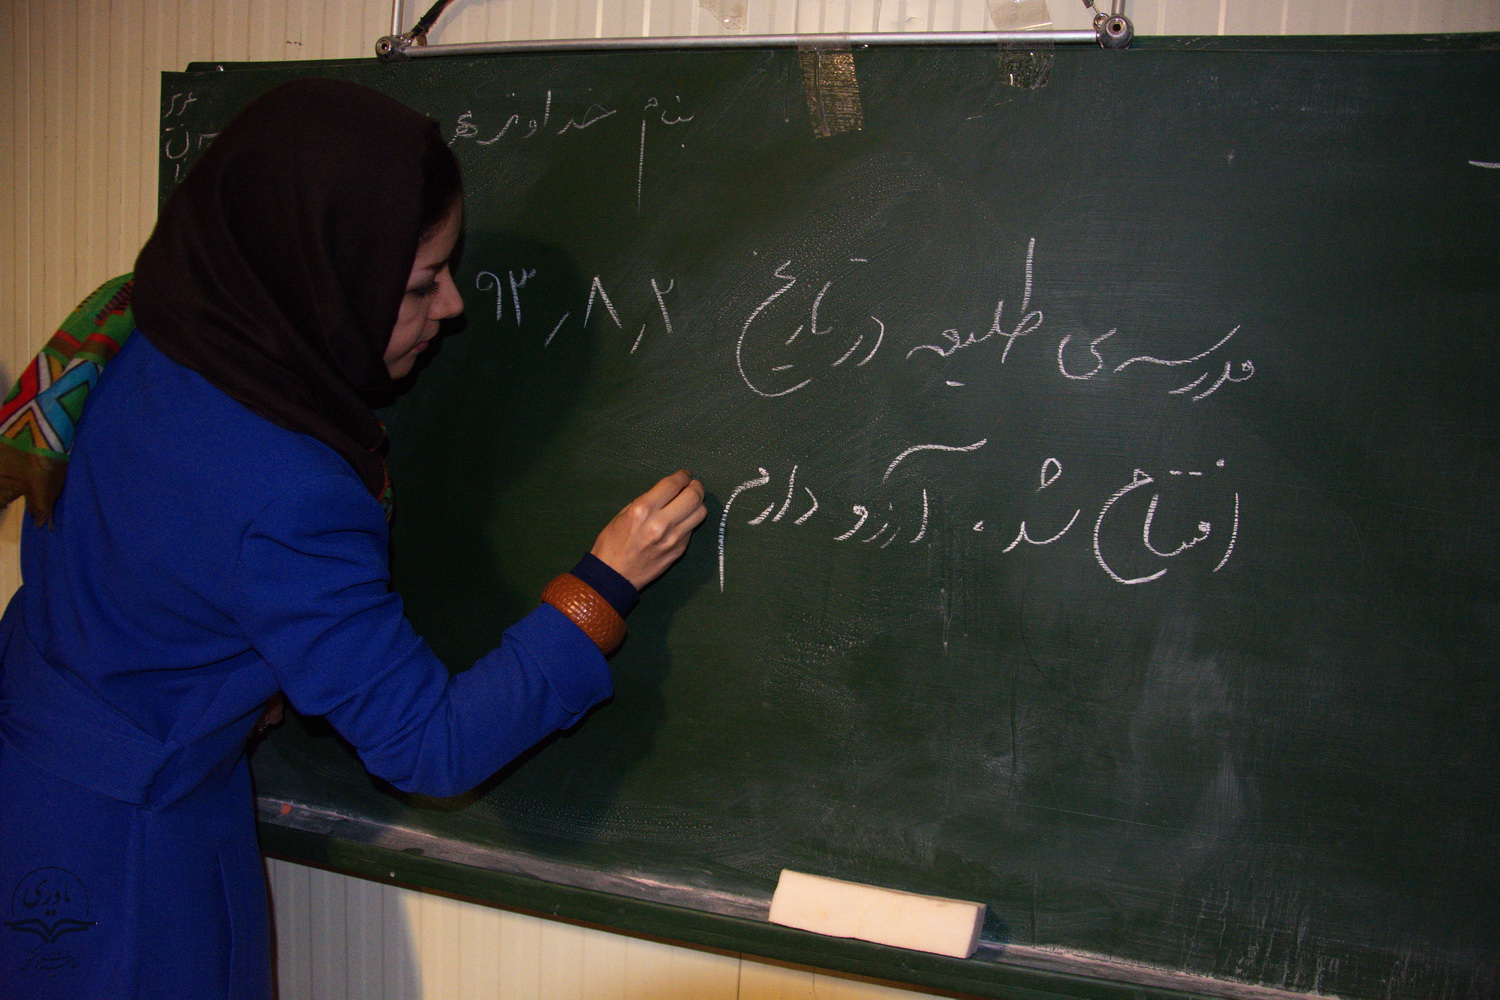 بنام خداوند
مدرسه‌ی طلیعه در تاریخ ۹۳٫۸٫۲
افتتاح شد. آرزو دارم
نادری